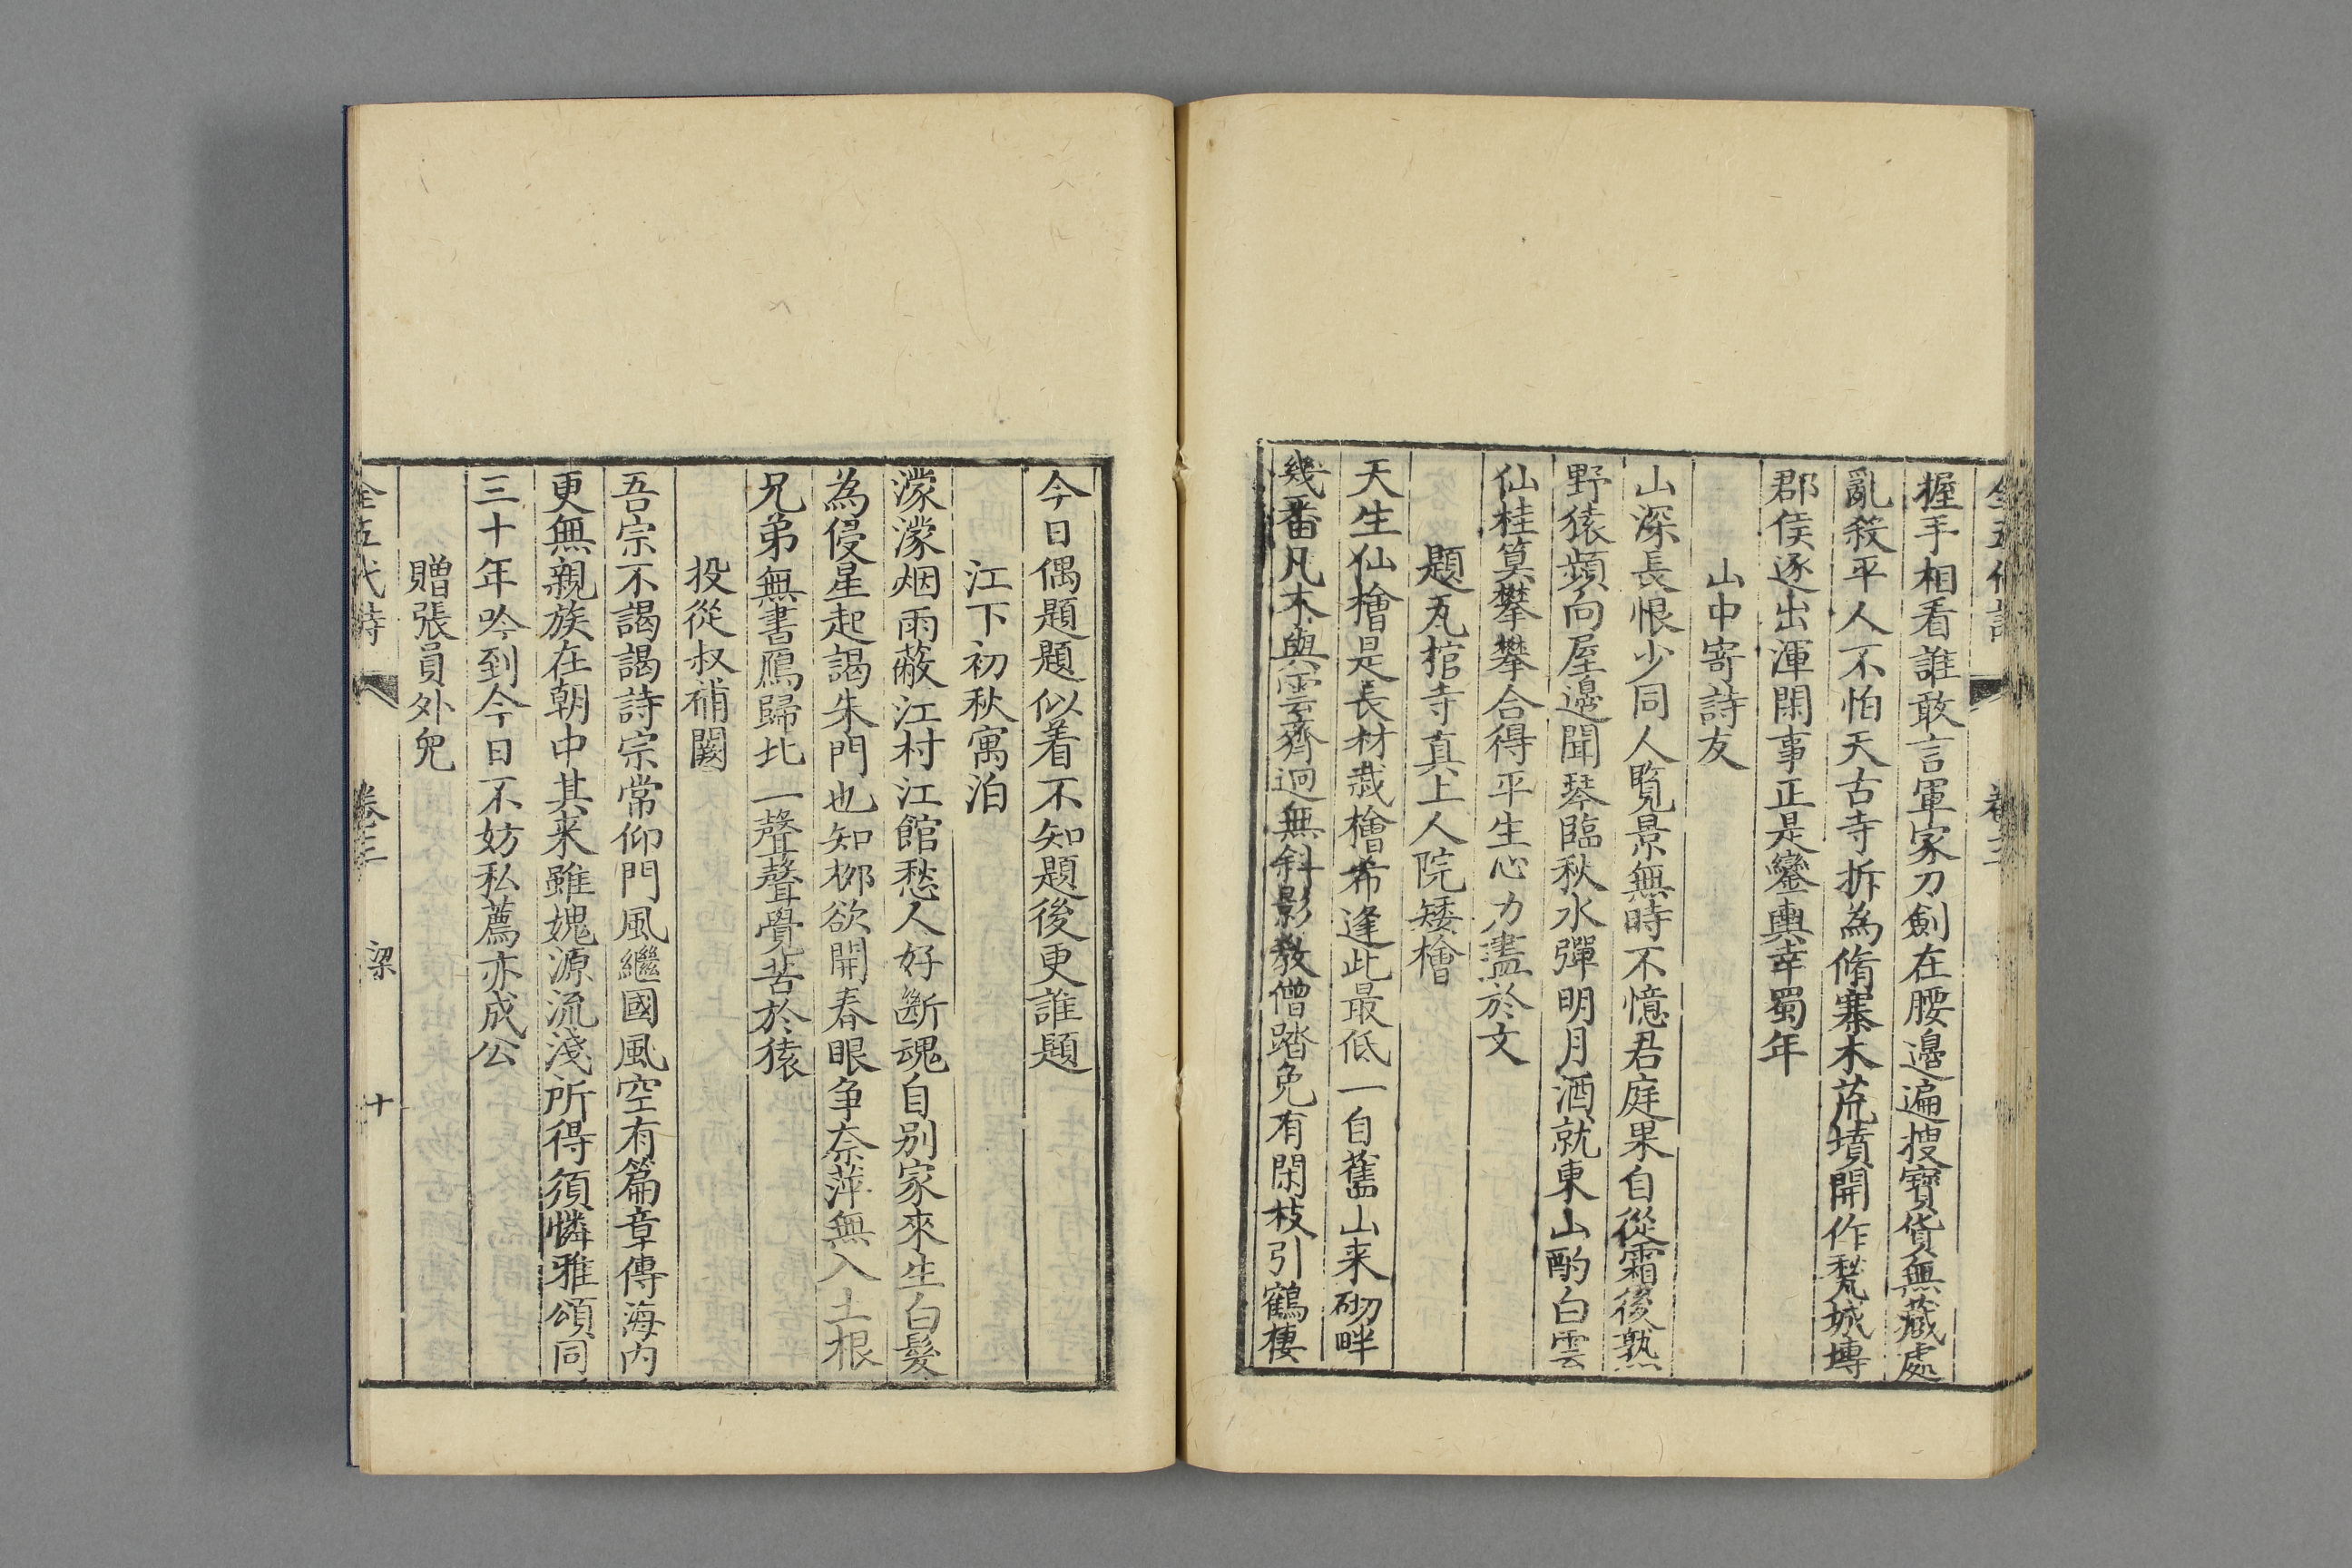 握手相看誰敢言軍家刀劍在腰邊遍搜寶貨無藏處
亂殺平人不怕天古寺拆為脩寨木荒墳開作甃城塼
郡侯逐出渾閑事正是鑾輿幸蜀年
山中寄詩友
山深長恨少同人覧景無時不憶君庭果自從霜後熟
野猿頻向屋邊聞琴臨秋水彈明月酒就東山酌白雲
仙桂筭攀攀合得平生心力盡於文
題瓦棺寺真上人院矮檜
天生仙檜是長材栽檜希逢此最低一自舊山来砌畔
幾番凡木與雲齊迥無斜影教僧踏免有閑枝引鶴棲
今日偶題題似着不知題後更誰題
江下初秋寓泊
濛濛烟雨蔽江村江館愁人好斷魂自别家來生白髮
為侵星起謁朱門也知栁欲開春眼争奈萍無入土根
兄弟無書鴈歸北一聲聲覺苦於猿
投從叔補闕
吾宗不謁謁詩宗常仰門風繼國風空有篇章傳海内
更無親族在朝中其来雖媿源流淺所得須憐雅頌同
三十年吟到今日不妨私薦亦成公
贈張員外兒
全五代詩 卷三 梁 十